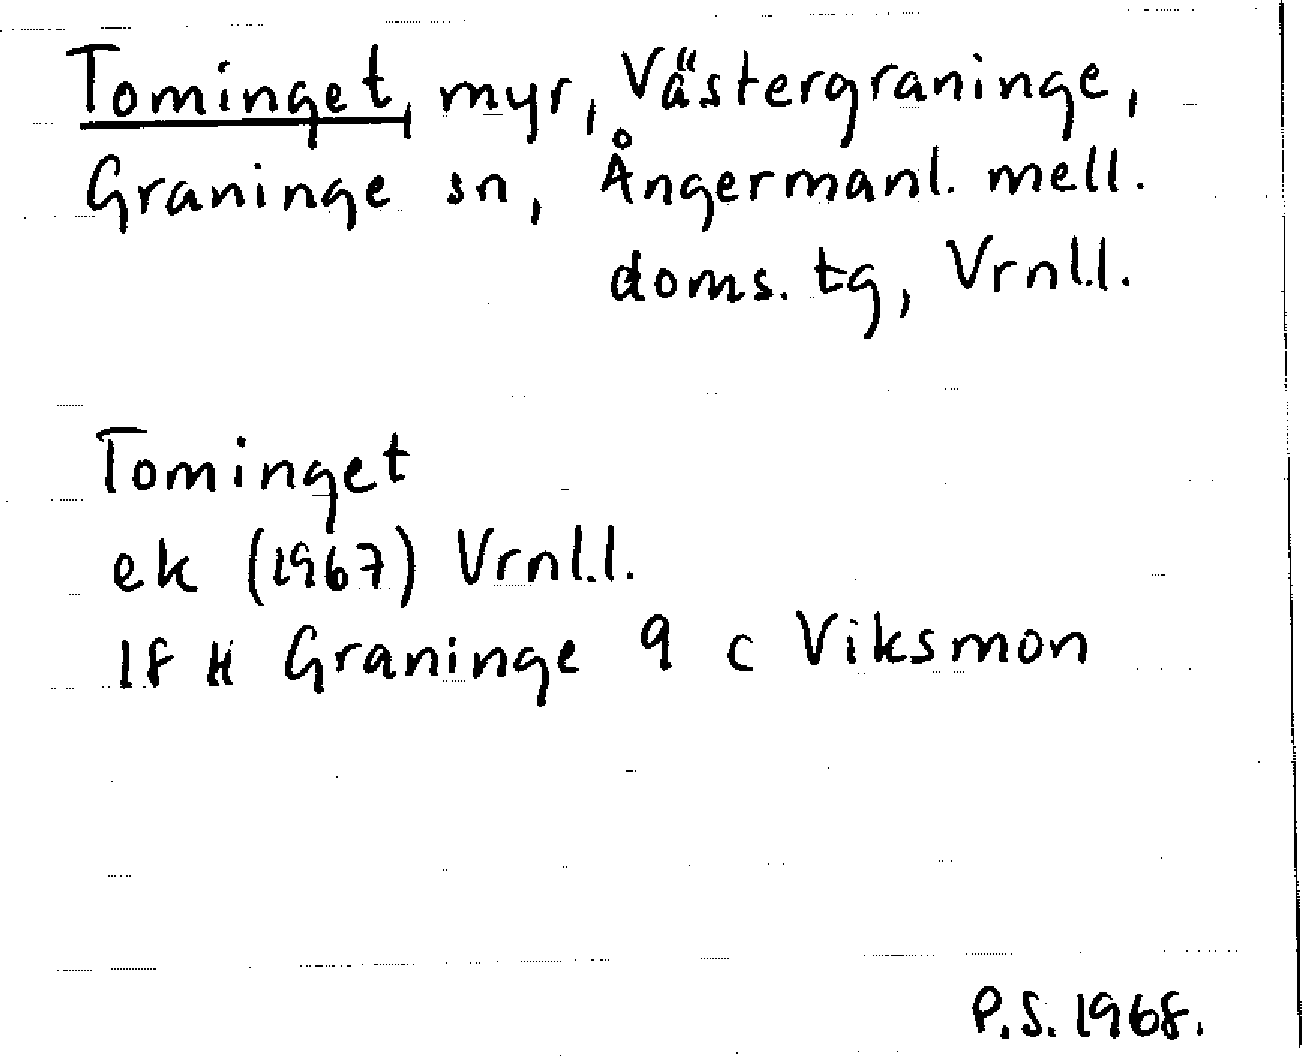 Tominget, myr, Västergraninge,
Graninge sn, Ångermanl. mell.
doms. tg, Vrnl.l.
Tominget
ek (1967) Vrnl.l.
18 H Graninge 9 c Viksmon
P.S. 1968.